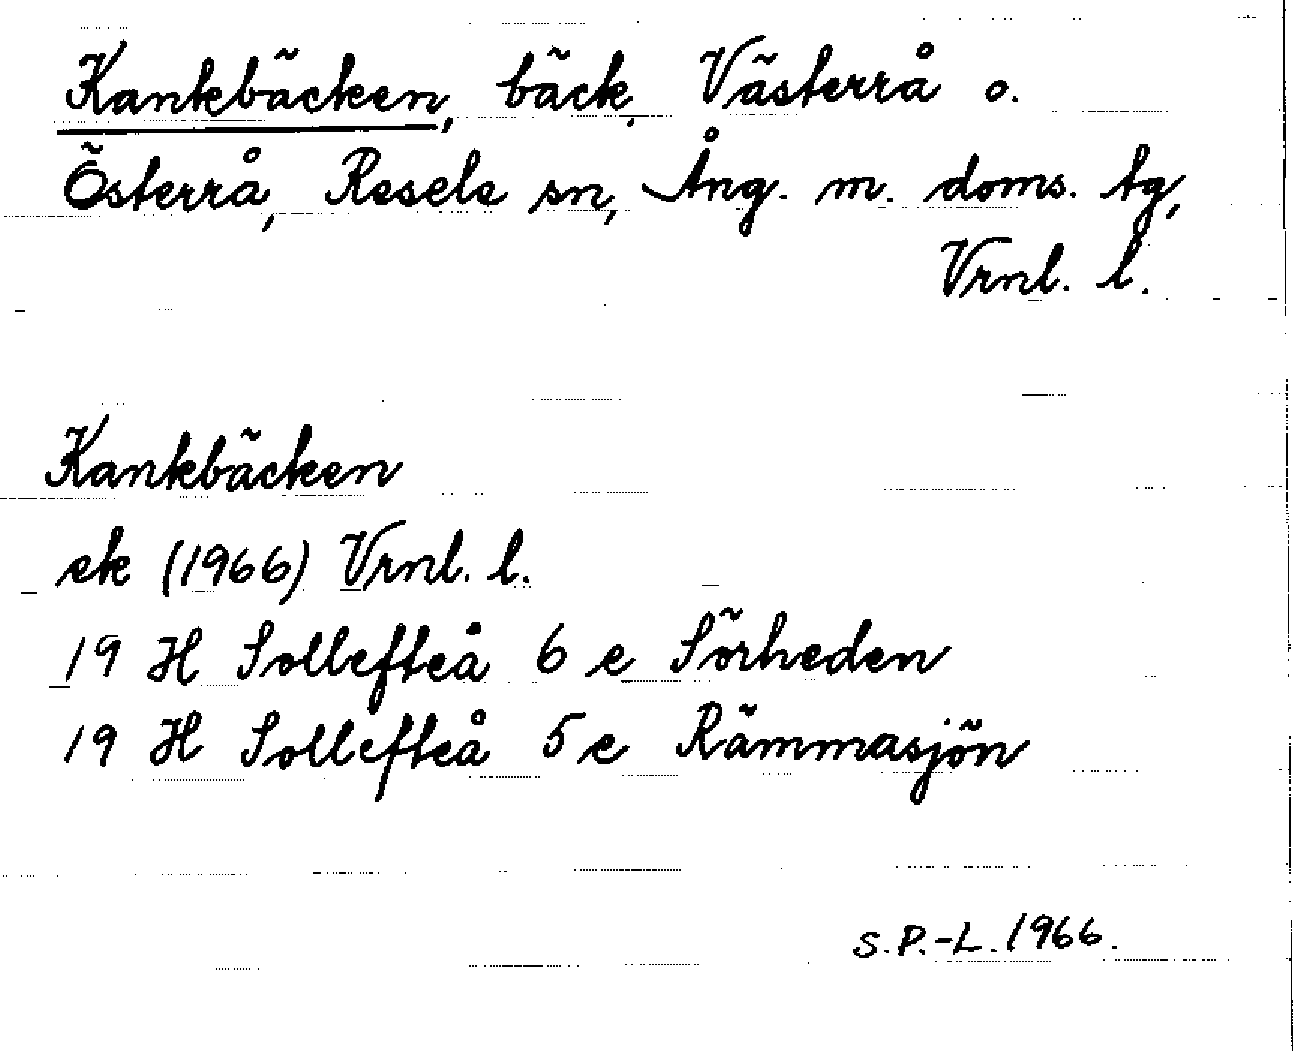 Kankbäcken, bäck, Västerrå o.
Österrå, Resele sn, Ång. m. doms. tg,
Vrnl. l.
Kankbäcken
ek (1966) Vrnl. l.
19 H Sollefteå 6 e Sörheden
19 H Sollefteå 5 e Rämmasjön
S.P.-L. 1966.